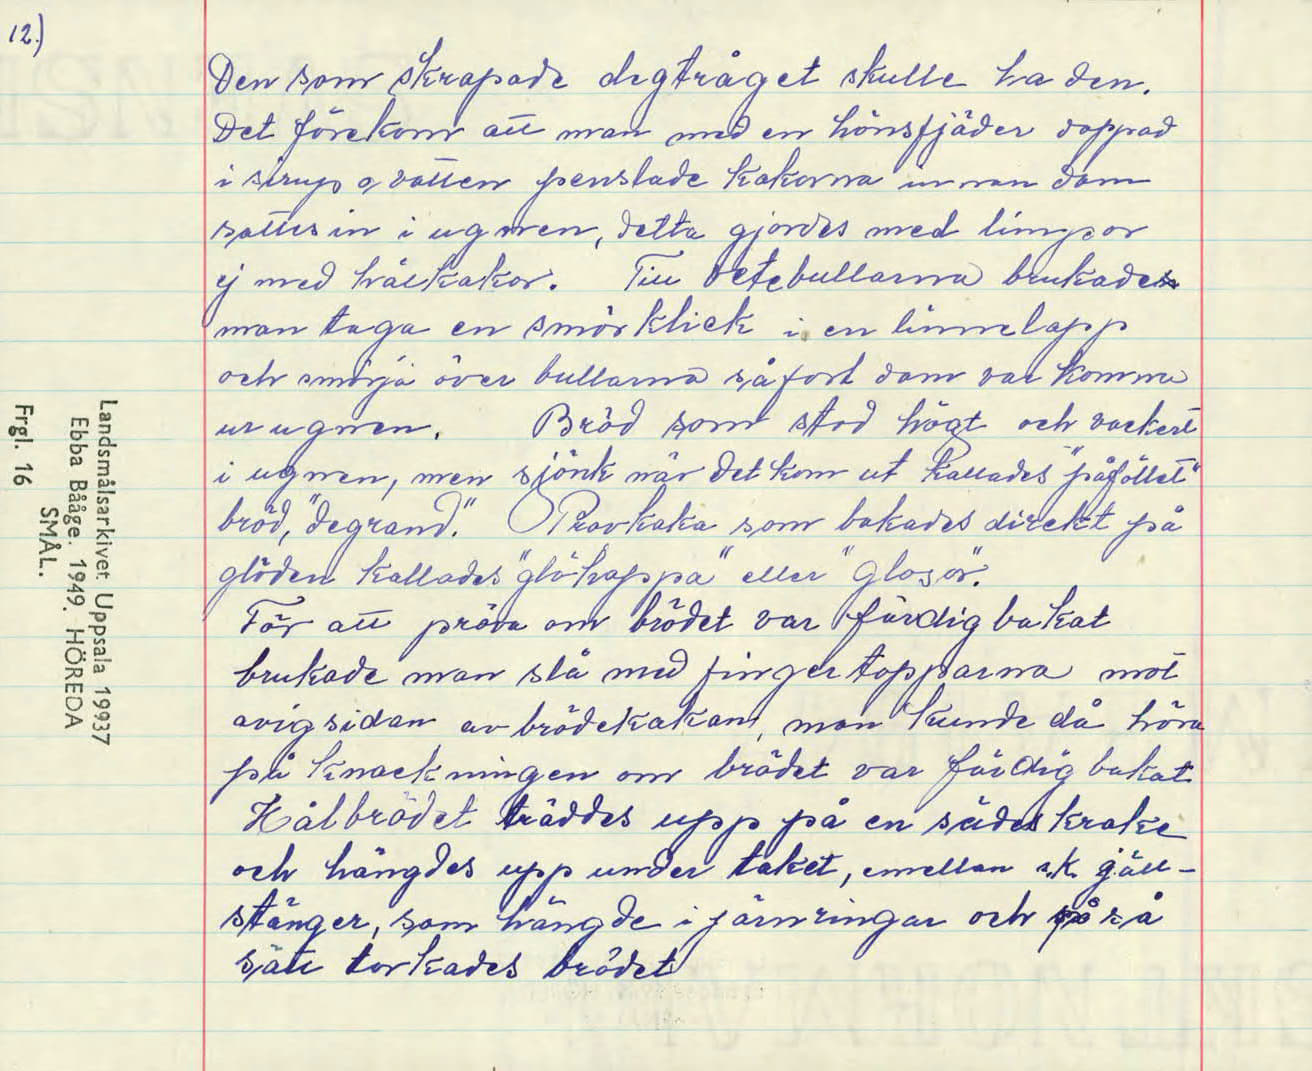 12.)
Den som skrapade degtråget skulle ha den.
Det förekom att man med en hönsfjäder doppad
i sirup o vatten penslade kakorna innan dom
sattes in i ugnen, detta gjordes med limpor
ej med hålkakor. Till vetebullarna brukades
man taga en smörklick i en linnelapp
och smörja över bullarna så fort dom var komna
ur ugnen. Bröd som stod högt och vackert
i ugnen, men sjönk när det kom ut kallades "påföllet"
bröd, "degrand." Provkaka som bakades direkt på
glöden kallades "glöhoppa" eller "glosör".
För att pröva om brödet var färdigbakat
brukade man slå med fingertopparna mot
avigsidan av brödekakan, man kunde då höra
på knackningen om brödet var färdigbakat
Hålbrödet träddes upp på en sädeskrake
och hängdes upp under taket, emellan s.k. gäll-
stänger, som hängde i järnringar och på så
sätt torkades brödet
Landsmålsarkivet Uppsala 19937
Ebba Bååge. 1949. HÖREDA
SMÅL.
Frgl. 16